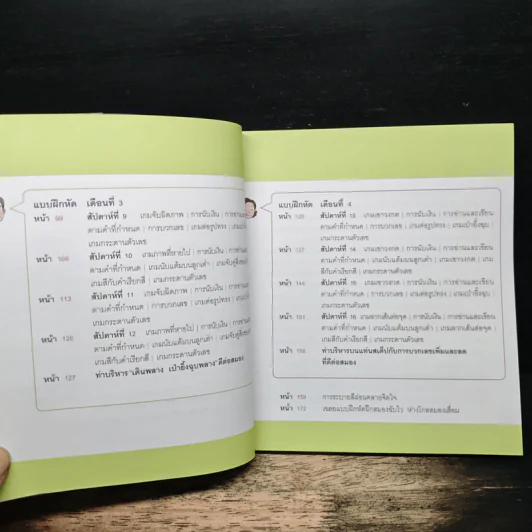 แบบฝึกหัด เดือนที่ 3
หน้า 99 สัปดาห์ที่ 9 เกมจับผิดภาพ | การนับเงิน | การอ่าน
ตามคำที่กำหนด | การบวกเลข | เกมต่อรูปทรง | เกมเป่ายิ้งฉุบ
เกมกระดานตัวเลข
หน้า 106 สัปดาห์ที่ 10 เกมภาพที่หายไป | การนับเงิน | การ
ตามคำที่กำหนด | เกมนับแต้มบนลูกเต๋า | เกมจับคู่
เกมสีกับคำเรียกสี | เกมกระดานตัวเลข
หน้า 113 สัปดาห์ที่ 11 เกมจับผิดภาพ | การนับเงิน | การอ่าน
ตามคำที่กำหนด | การบวกเลข | เกมต่อรูปทรง | เกมเป่ายิ้งฉุบ
เกมกระดานตัวเลข
หน้า 120 สัปดาห์ที่ 12 เกมภาพที่หายไป | การนับเงิน | การ
ตามคำที่กำหนด | เกมนับแต้มบนลูกเต๋า | เกมจับคู่
เกมสีกับคำเรียกสี | เกมกระดานตัวเลข
หน้า 127 ท่าบริหาร "เดินพลาง เป่ายิ้งฉุบพลาง" ดีต่อสมอง
แบบฝึกหัด เดือนที่ 4
หน้า 130 สัปดาห์ที่ 13 เกมเขาวงกต | การนับเงิน | การอ่านและเขียน
ตามคำที่กำหนด | การบวกเลข | เกมต่อรูปทรง | เกมเป่ายิ้งฉุบ
เกมกระดานตัวเลข
หน้า 137 สัปดาห์ที่ 14 เกมเขาวงกต | การนับเงิน | การอ่านและเขียน
ตามคำที่กำหนด | เกมนับแต้มบนลูกเต๋า | เกมเขาวงกต | เกม
สีกับคำเรียกสี | เกมกระดานตัวเลข
หน้า 144 สัปดาห์ที่ 15 เกมเขาวงกต | การนับเงิน | การอ่านและเขียน
ตามคำที่กำหนด | การบวกเลข | เกมต่อรูปทรง | เกมเป่ายิ้งฉุบ
เกมกระดานตัวเลข
หน้า 151 สัปดาห์ที่ 16 เกมลากเส้นต่อจุด | การนับเงิน | การอ่านและเขียน
ตามคำที่กำหนด | เกมนับแต้มบนลูกเต๋า | เกมลากเส้นต่อจุด |
เกมสีกับคำเรียกสี | เกมกระดานตัวเลข
หน้า 158 ท่าบริหารบนแท่นสเต็ปกับการบวกเลขเพิ่มและลด
ที่ดีต่อสมอง
หน้า 159 การระบายสีผ่อนคลายจิตใจ
หน้า 172 เฉลยแบบฝึกหัดฝึกสมองขับไว ห่างไกลสมองเสื่อม